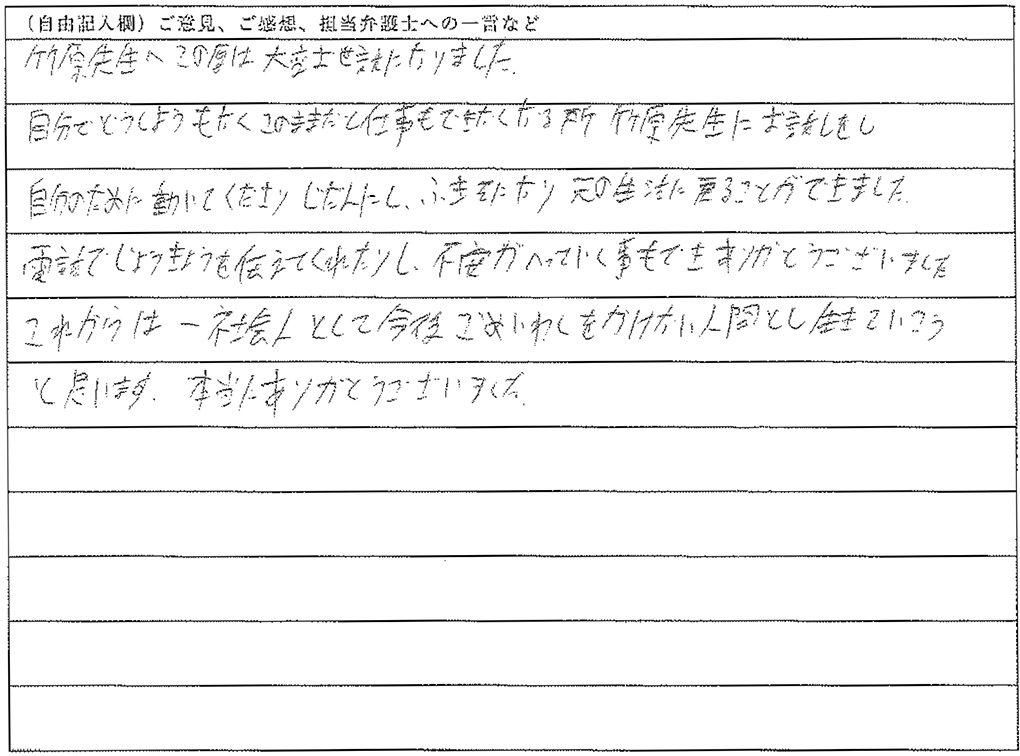 （自由記入欄）ご意見、ご感想、担当弁護士への一言など
竹原先生へ この度は 大変お世話になりました。
自分でどうしようもなく このままだと仕事もできなくなる所 竹原先生にお話しをし
自分のために動いてくださり じだんにし、ふきそになり 元の生活に戻ることができました。
電話でじょうきょうを伝えてくれたりし、不安がへっていく事もでき ありがとうございました
これからは 一社会人として今後ごめいわくをかけない人間とし生きていこう
と思います。 本当にありがとうございました。